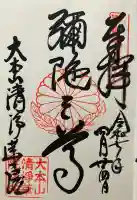 奉拝
令和六年四月廿四日
彌陀三尊
大本山清浄華院
大本山
清浄華院